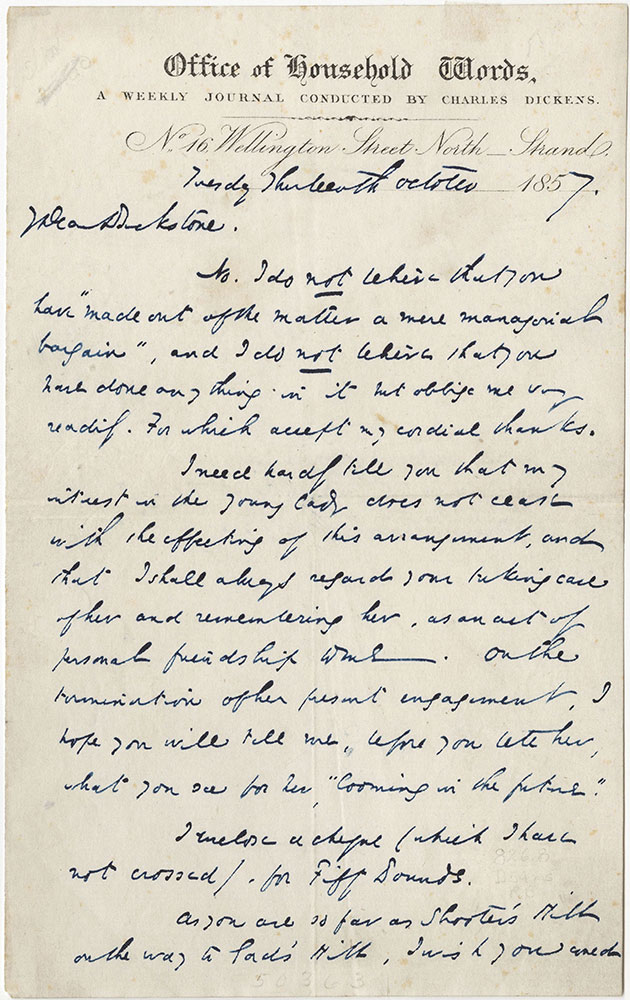 Office of Household Words,
A WEEKLY JOURNAL CONDUCTED BY CHARLES DICKENS.
No. 16, Wellington Street North, Strand.
Tuesday Thirteenth October 1857.
My Dear Buckstone.
No. I do not believe that you
have "made out of the matter a mere managerial
bargain", and I do not believe that you
have done any thing in it but oblige me very
readily. For which accept my cordial thanks.
I need hardly tell you that my
interest in the young lady does not cease
with the effecting of this arrangement, and
that I shall always regard your taking care
of her and remembering her, as an act of
personal friendship to me. On the
termination of her present engagement, I
hope you will tell me, before you tell her,
what you see for her, "looming in the future".
I enclose a cheque (which I have
not crossed) for Fifty Pounds.
As you are so far as Shooter's Hill
on the way to Gad's Hill, I wish you would
50363